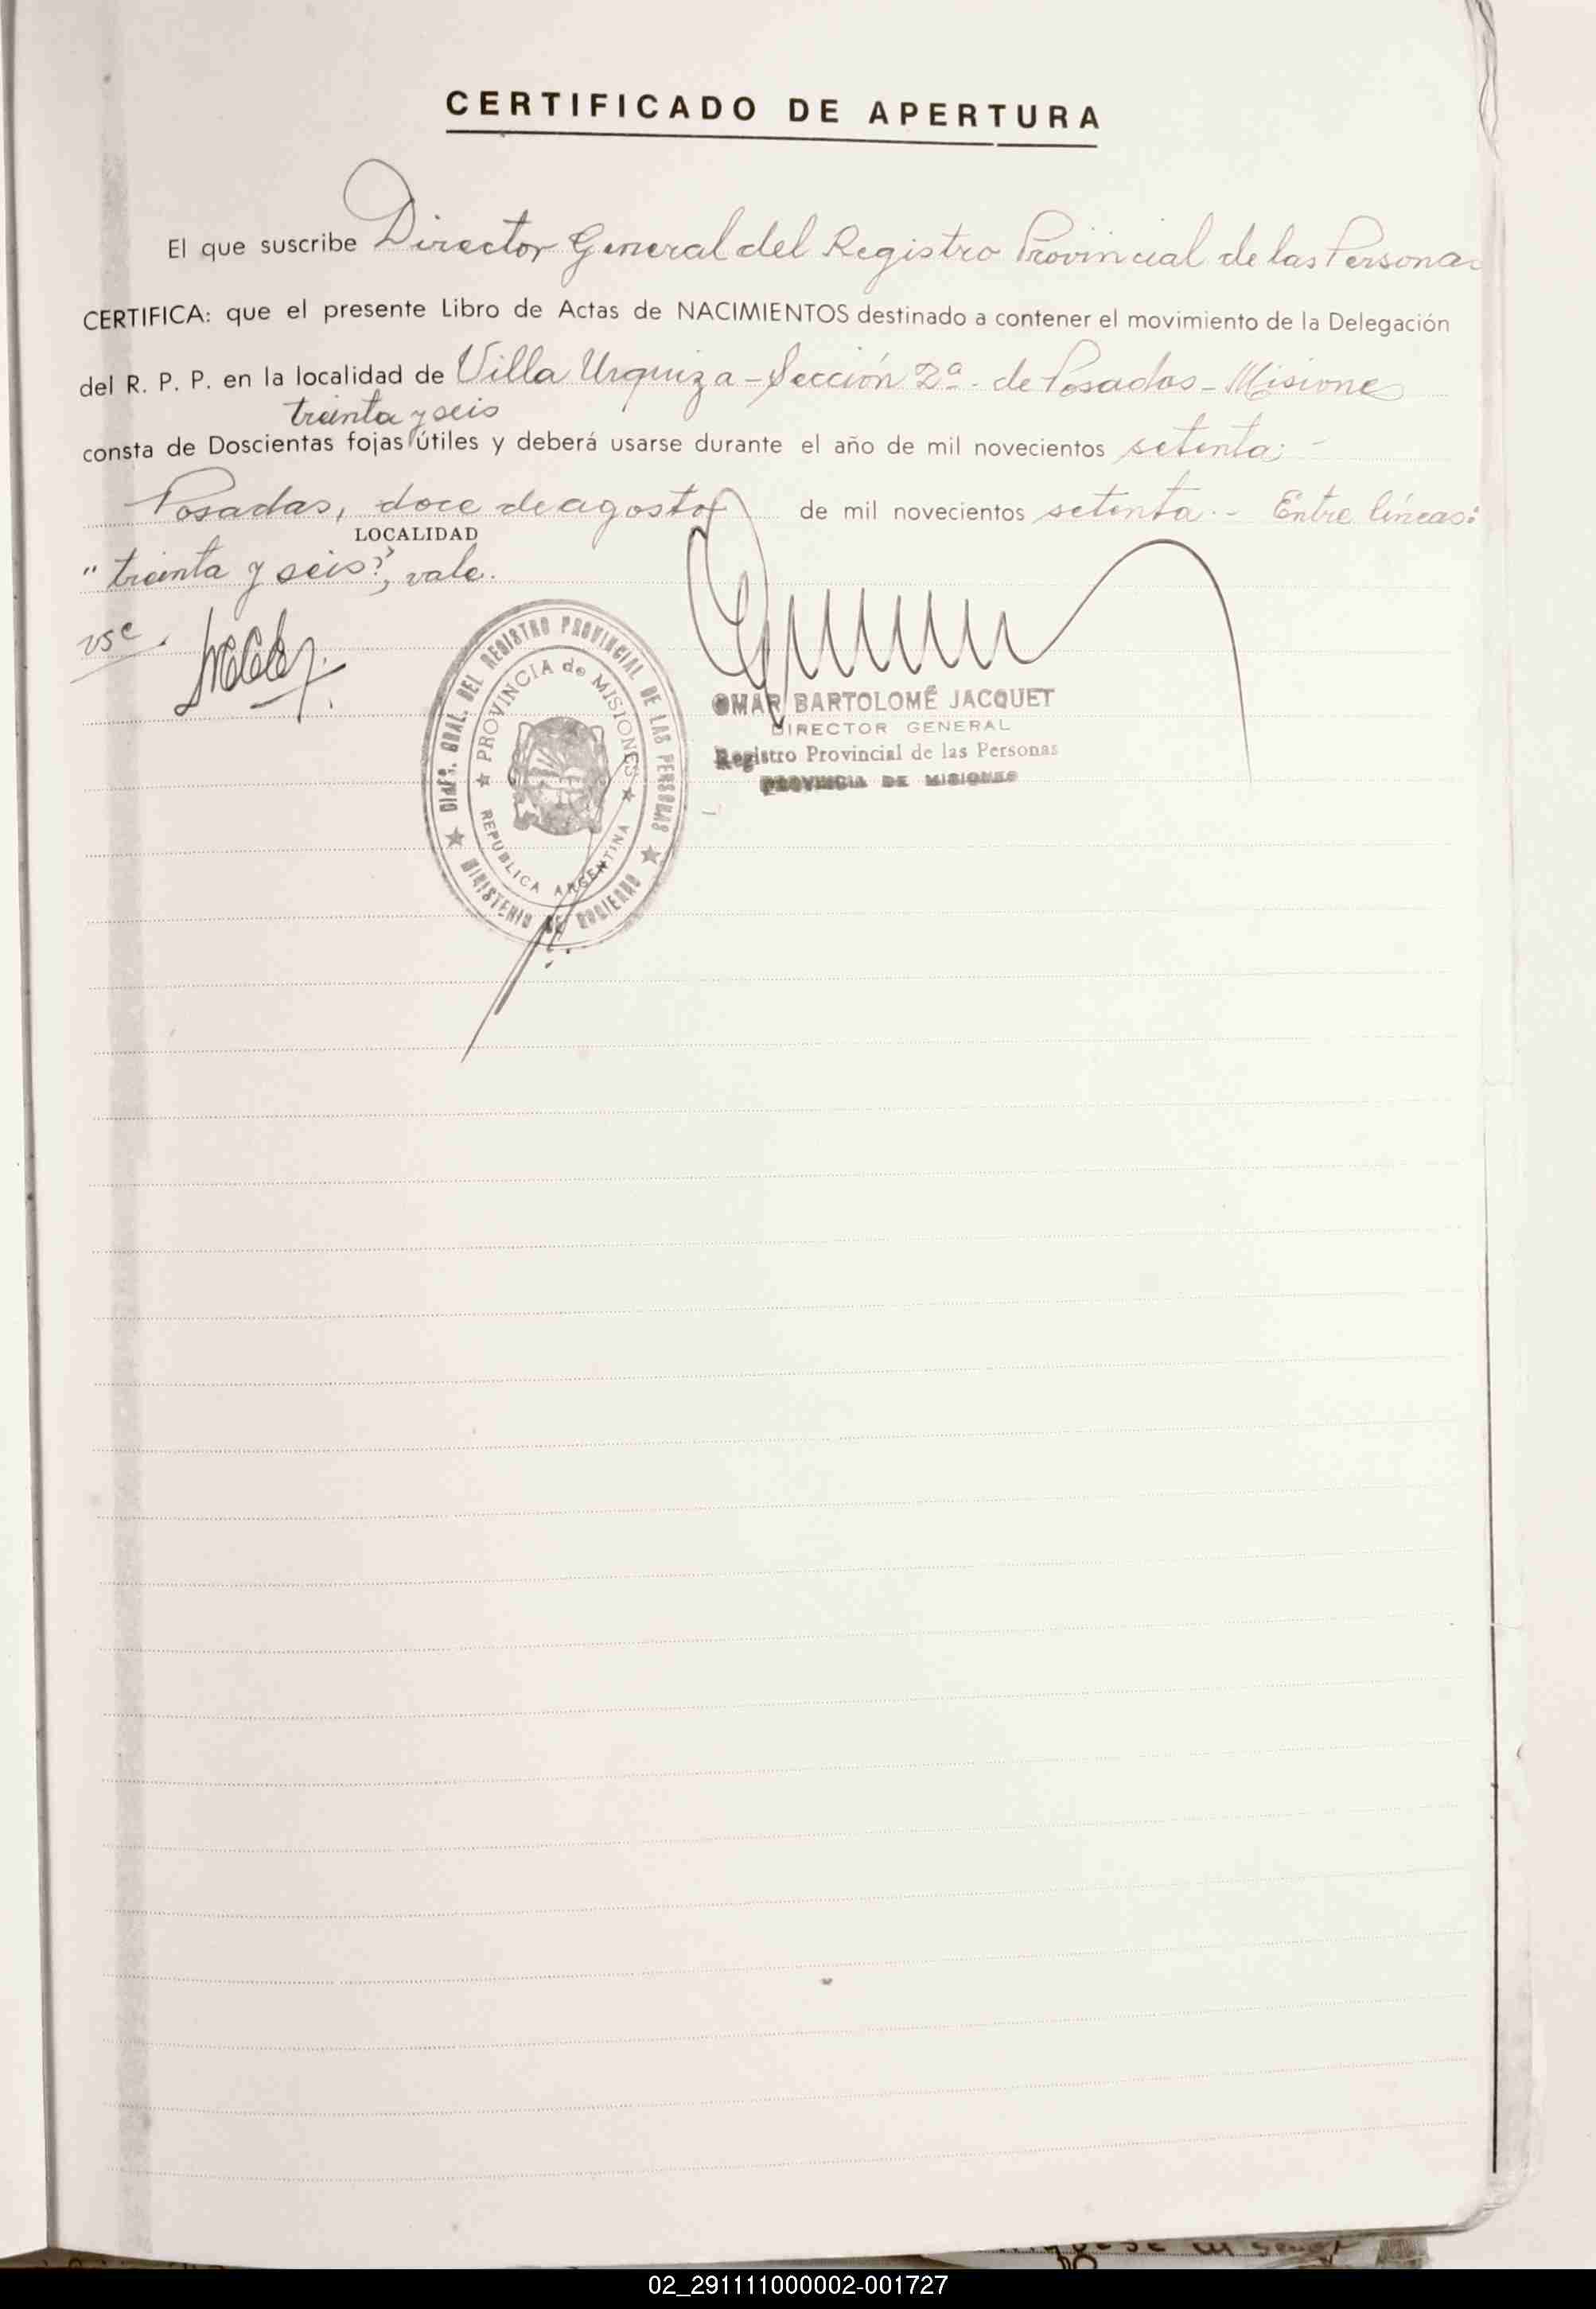 CERTIFICADO DE APERTURA
El que suscribe Director General del Registro Provincial de las Personas
CERTIFICA: que el presente Libro de Actas de NACIMIENTOS destinado a contener el movimiento de la Delegación
del R. P. P. en la localidad de Villa Urquiza - Sección 2ª - de Posadas - Misiones
treinta y seis
consta de Doscientas fojas útiles y deberá usarse durante el año de mil novecientos setenta.-
Posadas, doce de agosto de mil novecientos setenta.- Entre líneas:
LOCALIDAD
"treinta y seis", vale.
vsc
DIREC. GRAL. DEL REGISTRO PROVINCIAL DE LAS PERSONAS
PROVINCIA de MISIONES
REPUBLICA ARGENTINA
MINISTERIO DE GOBIERNO
OMAR BARTOLOMÉ JACQUET
DIRECTOR GENERAL
Registro Provincial de las Personas
PROVINCIA DE MISIONES
02_291111000002-001727